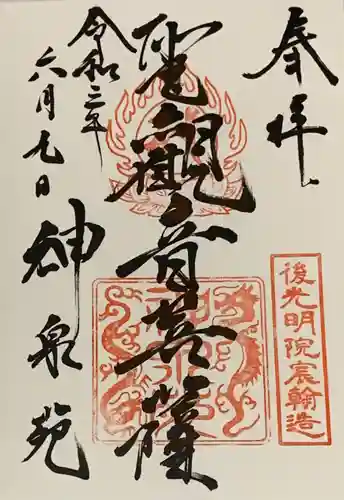 奉拝
聖觀音菩薩
令和二年
六月九日
神泉苑
後光明院宸翰造